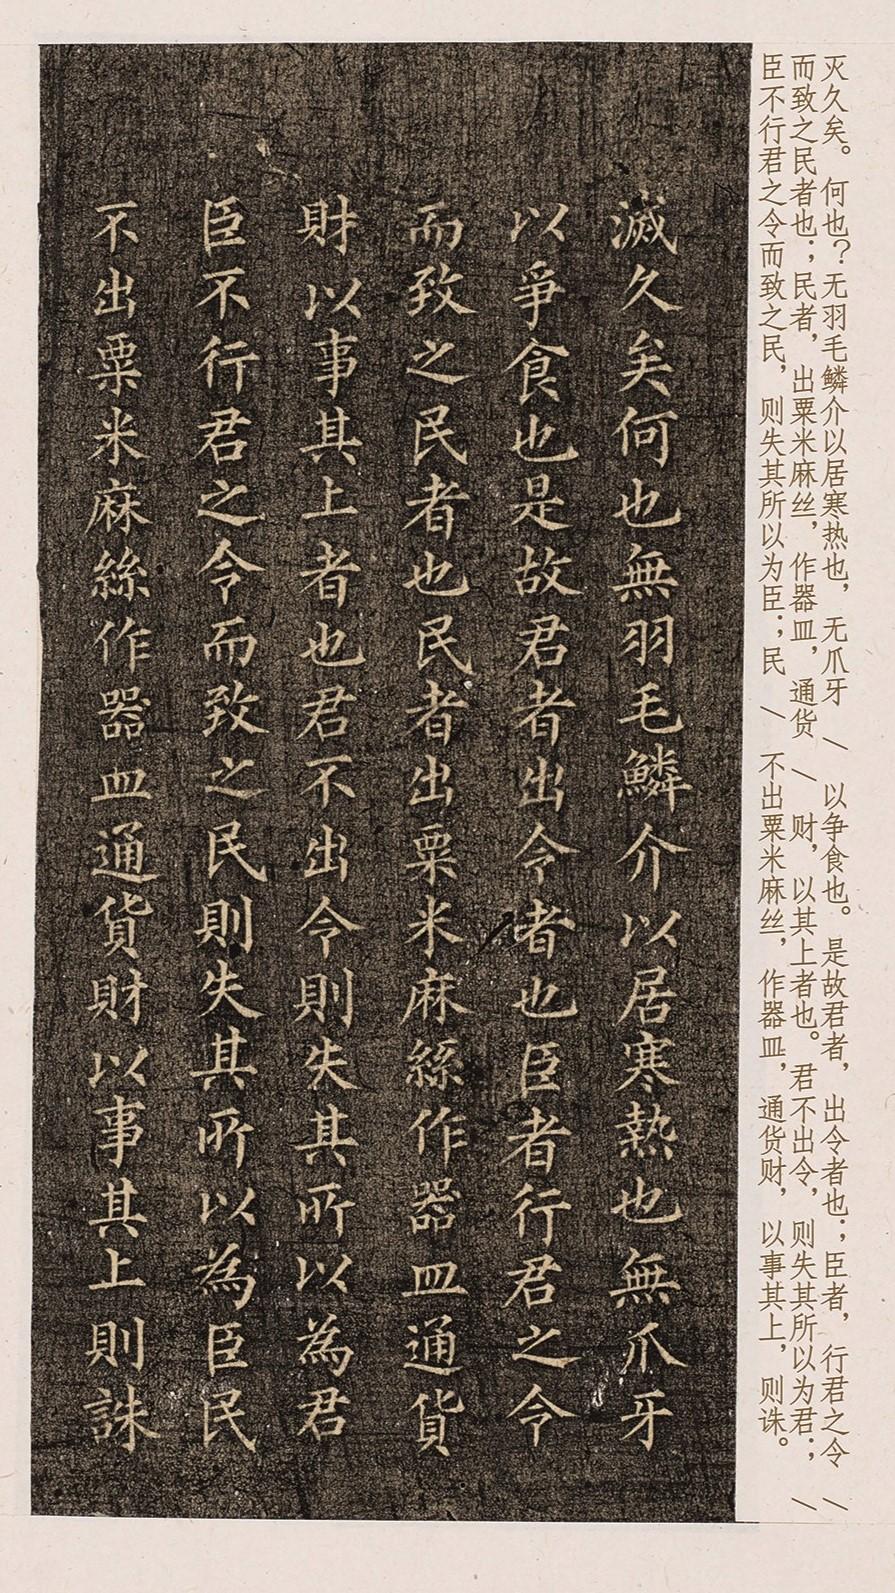 灭久矣。何也？无羽毛鳞介以居寒热也，无爪牙／以争食也。是故君者，出令者也；臣者，行君之令／
而致之民者也；民者，出粟米麻丝，作器皿，通货／财，以其上者也。君不出令，则失其所以为君；／
臣不行君之令而致之民，则失其所以为臣；民／不出粟米麻丝，作器皿，通货财，以事其上，则诛。
滅久矣何也無羽毛鱗介以居寒熱也無爪牙
以爭食也是故君者出令者也臣者行君之令
而致之民者也民者出粟米麻絲作器皿通貨
財以事其上者也君不出令則失其所以為君
臣不行君之令而致之民則失其所以為臣民
不出粟米麻絲作器皿通貨財以事其上則誅